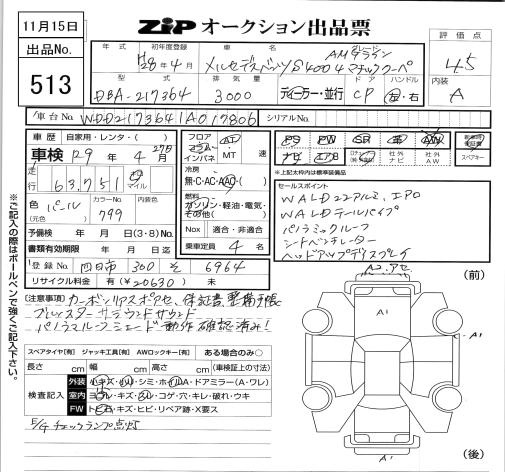 11月15日
ZIP オークション出品票
出品No.
513
年式 初年度登録 車名 グレード
H28年4月 メルセデスベンツ S400 4マチッククーペ
AMGライン
型式 排気量 ドア ハンドル
DBA-217364 3000 ディーラー・並行 CP 左・右
評価点
4.5
内装
A
車台No. WDD2173641A017806 シリアルNo.
車歴 自家用・レンタ・( )
車検 29年 4月 27日
走行 63,751 km マイル
色 (元色) パール カラーNo. 799 内装色
予備検 年 月 日(3・8)No.
書類有効期限 年 月 日迄
登録No. 四日市 300 そ 6964
リサイクル料金 有(¥20630) 未
フロア コラム インパネ AT ・MT 速
冷房 無・C・AC・AAC・( )
燃料 ガソリン・軽油・電気・その他( )
Nox 適合・非適合
乗車定員 4 名
PS PW SR 革 AW
ナビ エアB 社外ナビ 社外AW
新車時保証書
スペアキー
※上記太枠内は標準装備品
セールスポイント
WALD 22アルミ、エアロ
WALDテールパイプ
パノラミックルーフ
シートベンチレーター
ヘッドアップディスプレイ
(注意事項) カーボンリアスポイラー、保証書、整備手帳
ブルメスターサラウンドサウンド
パノラマルーフシェード動作確認済み!
スペアタイヤ[有] ジャッキ工具[有] AWロックキー[有] ある場合のみ○
長さ cm 幅 cm 高さ cm (車検証上の寸法)
検査記入
外装 小キズ・小凹・シミ・ホイルA・ドアミラー(A・ワレ)
室内 ヨゴレ・キズ・スレ・コゲ・穴・キレ・破れ・ウキ
FW トビ石・キズ・ヒビ・リペア跡・X要ス
E/Gチェックランプ点灯
(前)
A1
A1
A1
(後)
※ご記入の際はボールペンで強くご記入下さい。